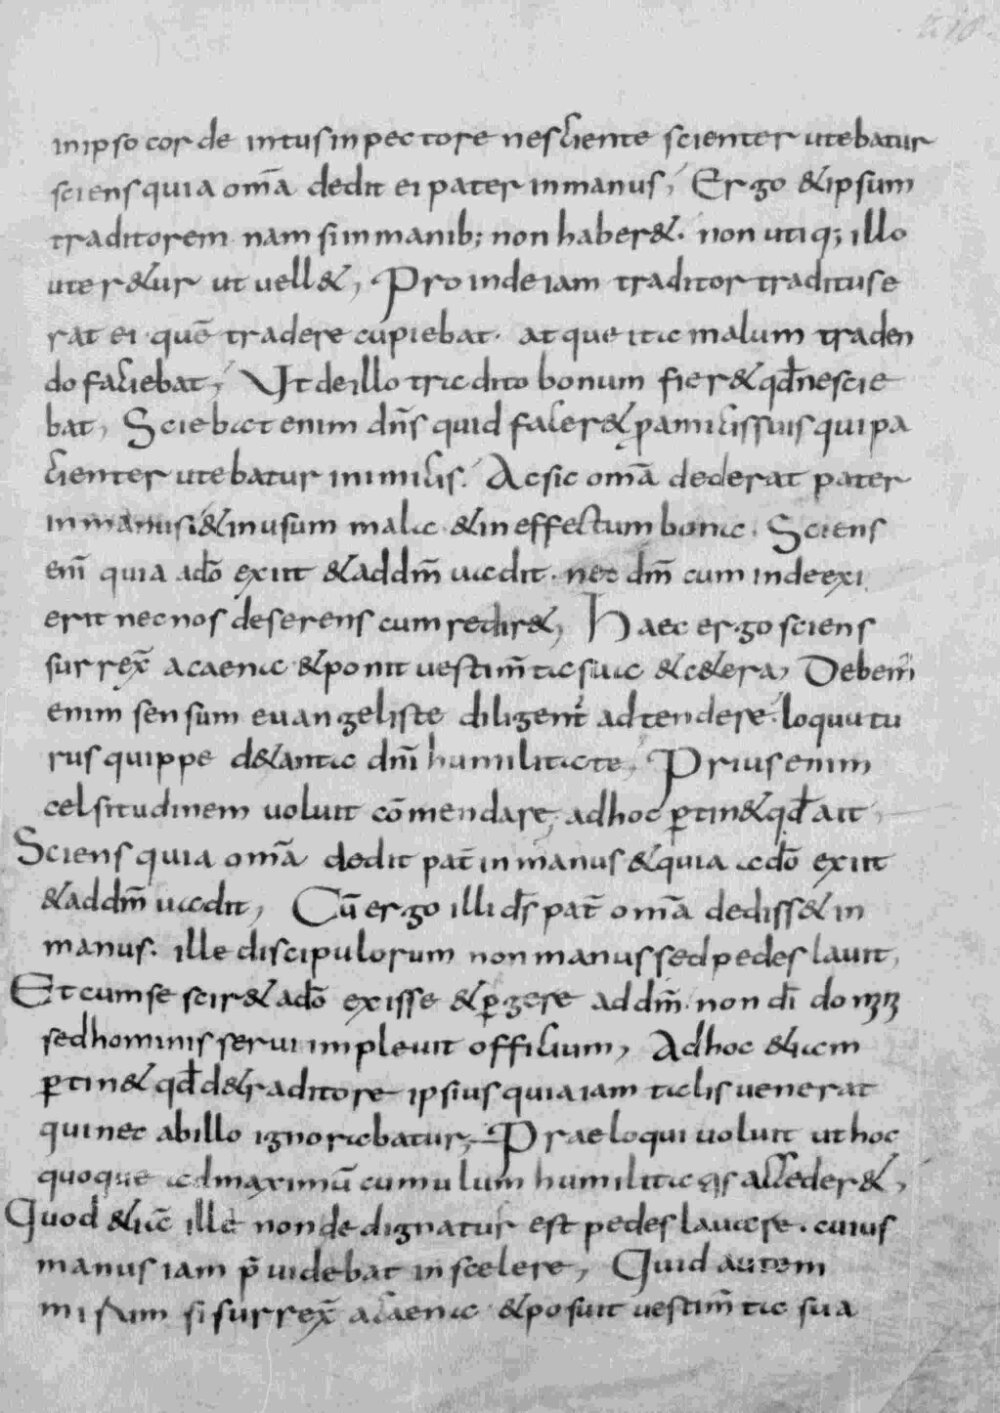 in ipso corde intus in pectore nesciente scienter utebatur
sciens quia om̅a dedit ei pater in manus, Ergo & ipsum
traditorem nam si in manib; non haber&. non utiq; illo
uter&ur ut uell&, Proinde iam traditor traditus e
rat ei que̅ tradere cupiebat. atque ita malum traden
do faciebat, Ut de illo tradito bonum fier& qd̅ nescie
bat, Sciebat enim dn̅s quid facer& p̱ amicis suis qui pa
cienter utebatur inimicis. Ac sic om̅a dederat pater
in manus & in usum mala & in effectum bona. Sciens
eni̅ quia a do̅ exiit & ad dm̅ uadit. nec dm̅ cum inde exi
erit nec nos deserens cum redir&, Haec ergo sciens
surrex̅ a caena & ponit uestim̅ta sua & c&era, Debem̅
enim sensum euangeliste diligent̅ adtendere. loquutu
rus quippe de tanta dn̅i humilitate, Prius enim
celsitudinem uoluit co̅mendare, ad hoc p̱tin& qd̅ ait,
Sciens quia om̅a dedit pat̅ in manus & quia a do̅ exiit
& ad dm̅ uadit, Cu̅ ergo illi ds̅ pat̅ om̅a dediss& in
manus. ille discipulorum non manus sed pedes lauit,
Et cum se scir& a do̅ exisse & p̱gere ad dm̅. non di̅ dom̅
sed hominis serui impleuit officium, Ad hoc &iam
p̱tin& qd̅ de traditore ipsius quia iam talis uenerat
qui nec ab illo ignorabatur, Praeloqui uoluit ut hoc
quoque ad maximu̅ cumulum humilitatis acceder&,
Quod &ia̅ ille non dedignatus est pedes lauare. cuius
manus iam p̅uidebat in scelere, Quid autem
mirum si surrex̅ a caena & posuit uestim̅ta sua